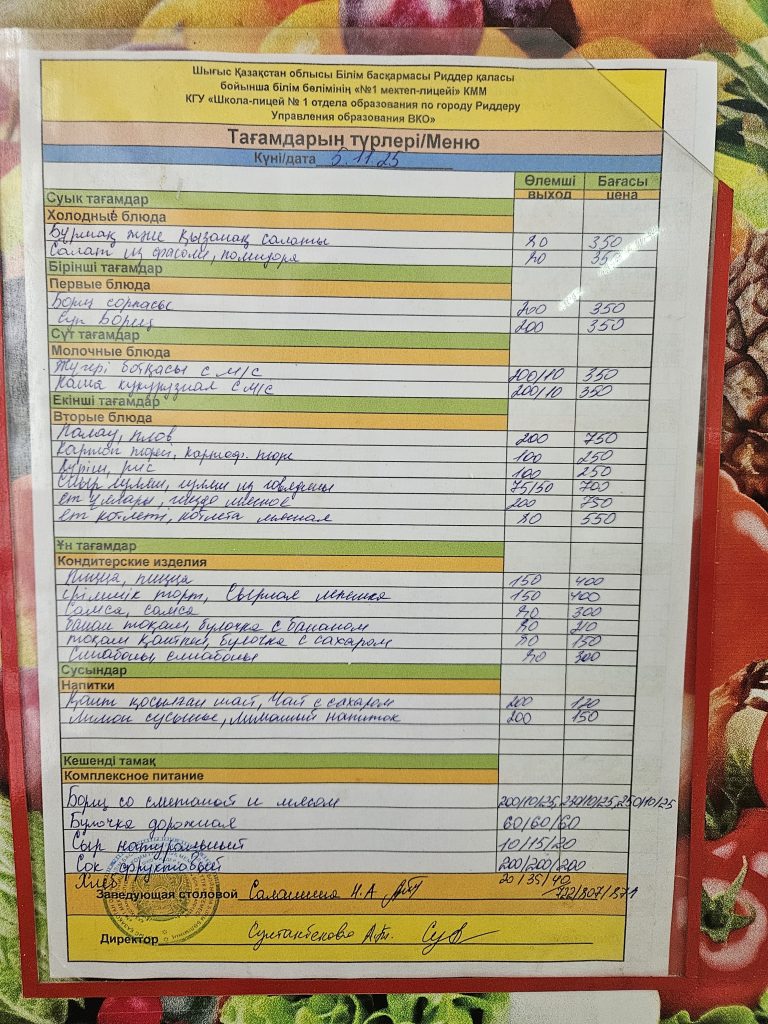 Шығыс Қазақстан облысы Білім басқармасы Риддер қаласы
бойынша білім бөлімінің «№1 мектеп-лицейі» КММ
КГУ «Школа-лицей № 1 отдела образования по городу Риддеру
Управления образования ВКО»
Тағамдарын түрлері/Меню
Күні/дата 5.11.25
Өлемші Бағасы
выход цена
Суык тағамдар
Холодные блюда
Бұршақ және қызанақ салаты 80 350
Салат из фасоли, помидора 80 350
Бірінші тағамдар
Первые блюда
Борщ сорпасы 200 350
Суп Борщ 200 350
Сүт тағамдар
Молочные блюда
Жүгері ботқасы с м/с 200/10 350
Каша кукурузная с м/с 200/10 350
Екінші тағамдар
Вторые блюда
Палау, плов 200 750
Картоп пюре, картоф. пюре 100 250
Күріш, рис 100 250
Сиыр гуляш, гуляш из говядины 75/50 700
ет ұялары, гнездо мясное 200 750
ет котлеті, котлета мясная 80 550
Ұн тағамдар
Кондитерские изделия
Пицца, пицца 150 400
ірімшік торт, Сырная лепешка 150 400
Самса, самса 80 300
банан тоқаш, булочка с бананом 80 210
тоқаш қантпен, булочка с сахаром 80 150
Синабоны, синабоны 80 300
Сусындар
Напитки
Қант қосылған шай, Чай с сахаром 200 120
Лимон сусыны, Лимонный напиток 200 150
Кешенді тамақ
Комплексное питание
Борщ со сметаной и мясом 200/10/25, 230/10/25, 250/10/25
Булочка дорожная 60/60/60
Сыр натуральный 10/15/20
Сок фруктовый 200/200/200
Хлеб 20/35/40
722/807/871
Заведующая столовой Н.А
Директор Султанбекова А.Т.